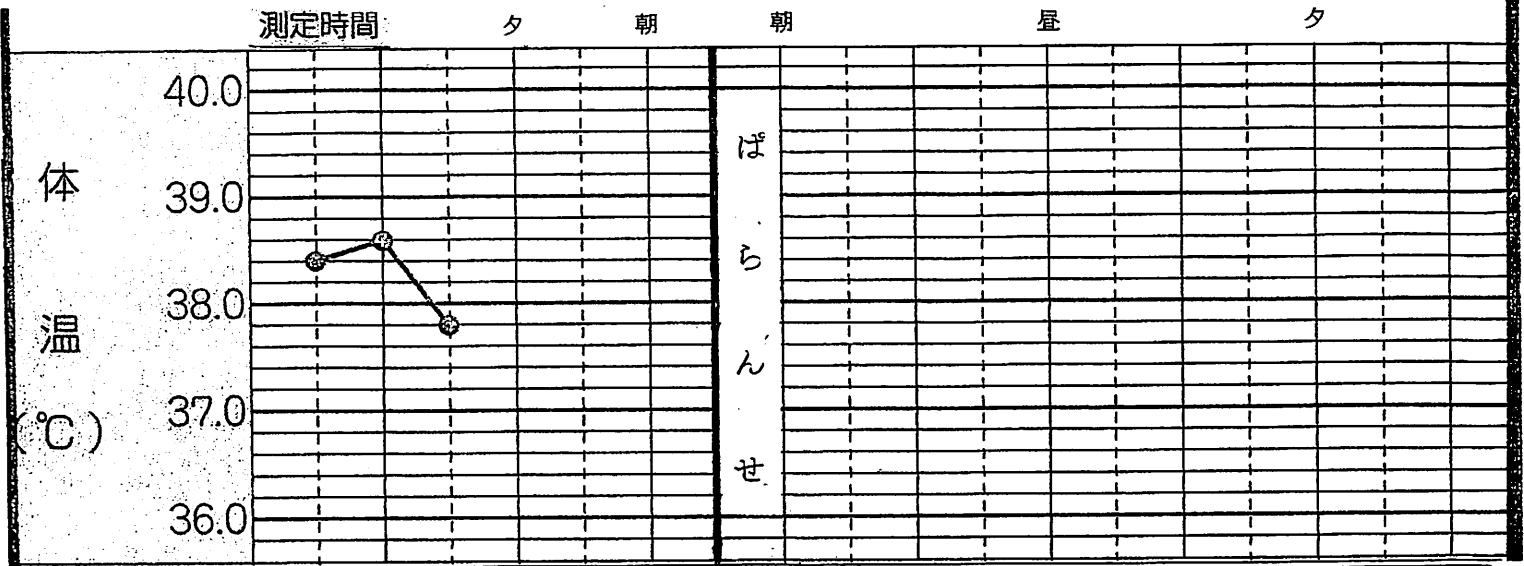 測定時間 夕 朝 朝 昼 夕
体温(℃)
40.0
39.0
38.0
37.0
36.0
ぱらんせ